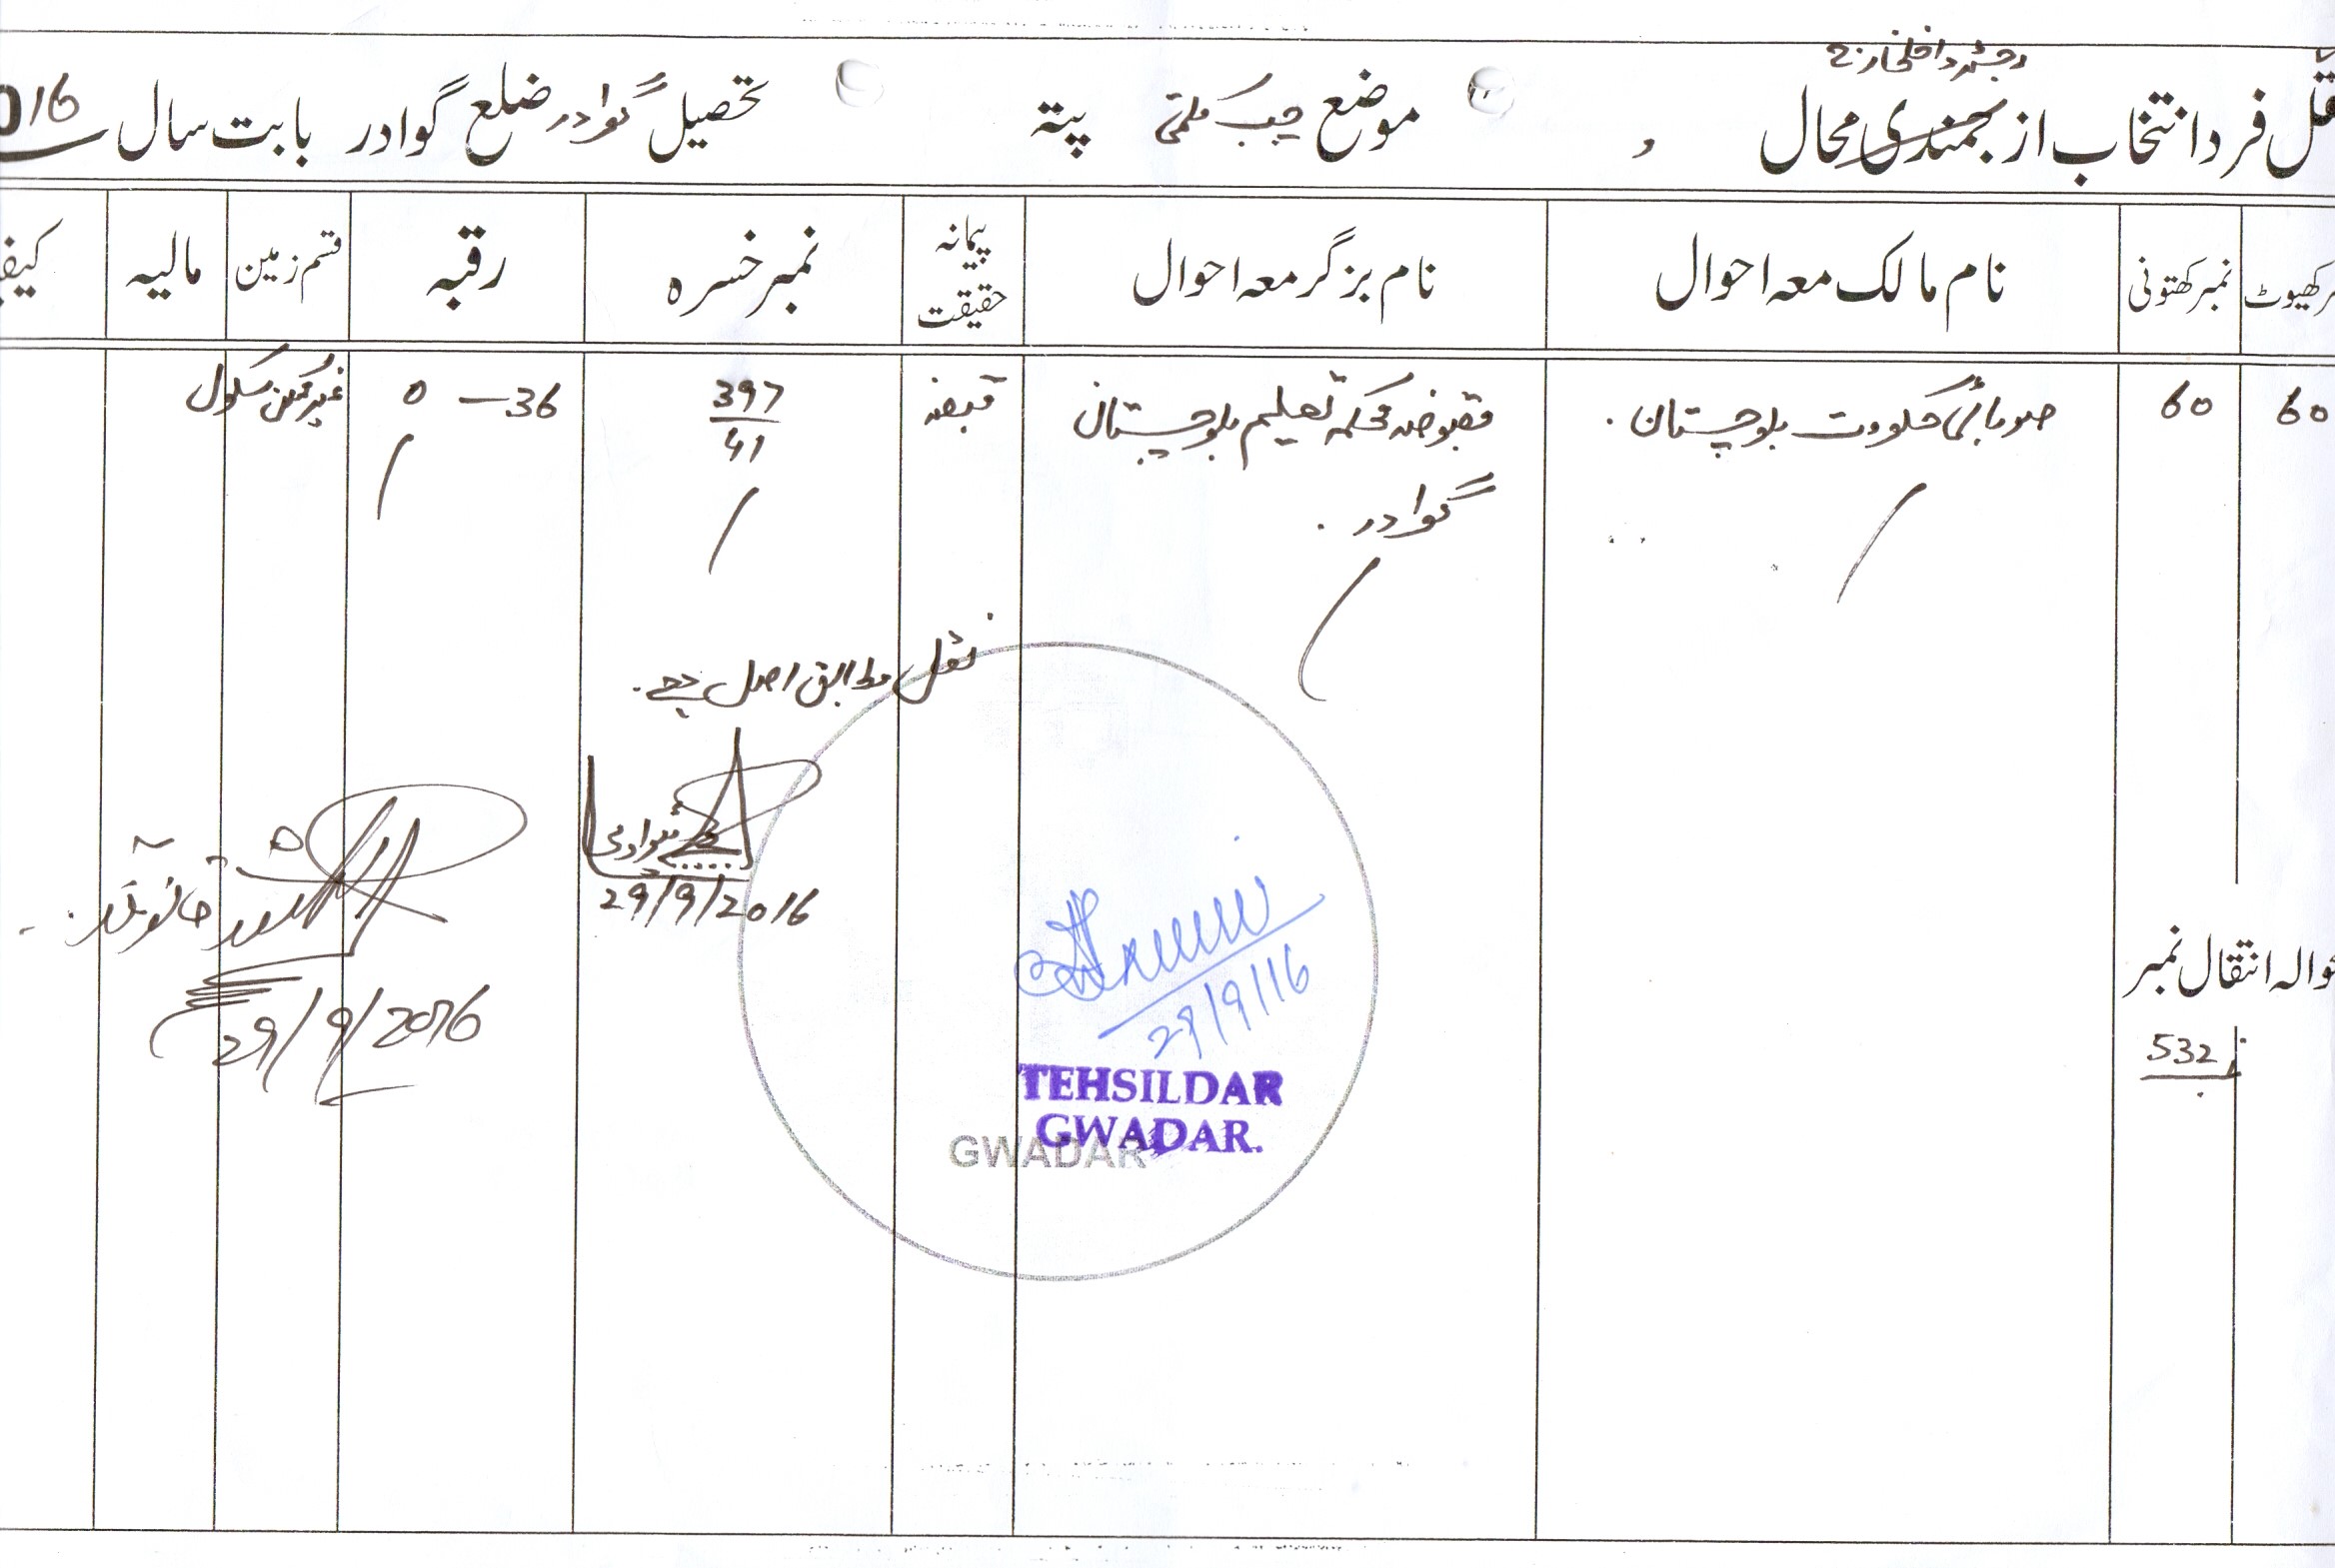 رجسٹر داخلخارج
نقل فرد انتخاب از جمعبندی محال موضع چب کلمتی پتہ تحصیل گوادر ضلع گوادر بابت سال 2016
کھیوٹ نمبر کھتونی نام مالک معہ احوال نام بزگر معہ احوال پیمانہ حقیقت نمبر خسرہ رقبہ قسم زمین مالیہ
60 60 صوبائی حکومت بلوچستان۔ مقبوضہ محکمہ تعلیم بلوچستان قبضہ 397/41 0 – 36 غیر ممکن سکول
گوادر۔
نقل مطابق اصل ہے۔
29/9/2016
29/9/16
حوالہ انتقال نمبر
29/9/2016
532
TEHSILDAR
GWADAR.
GWADAR